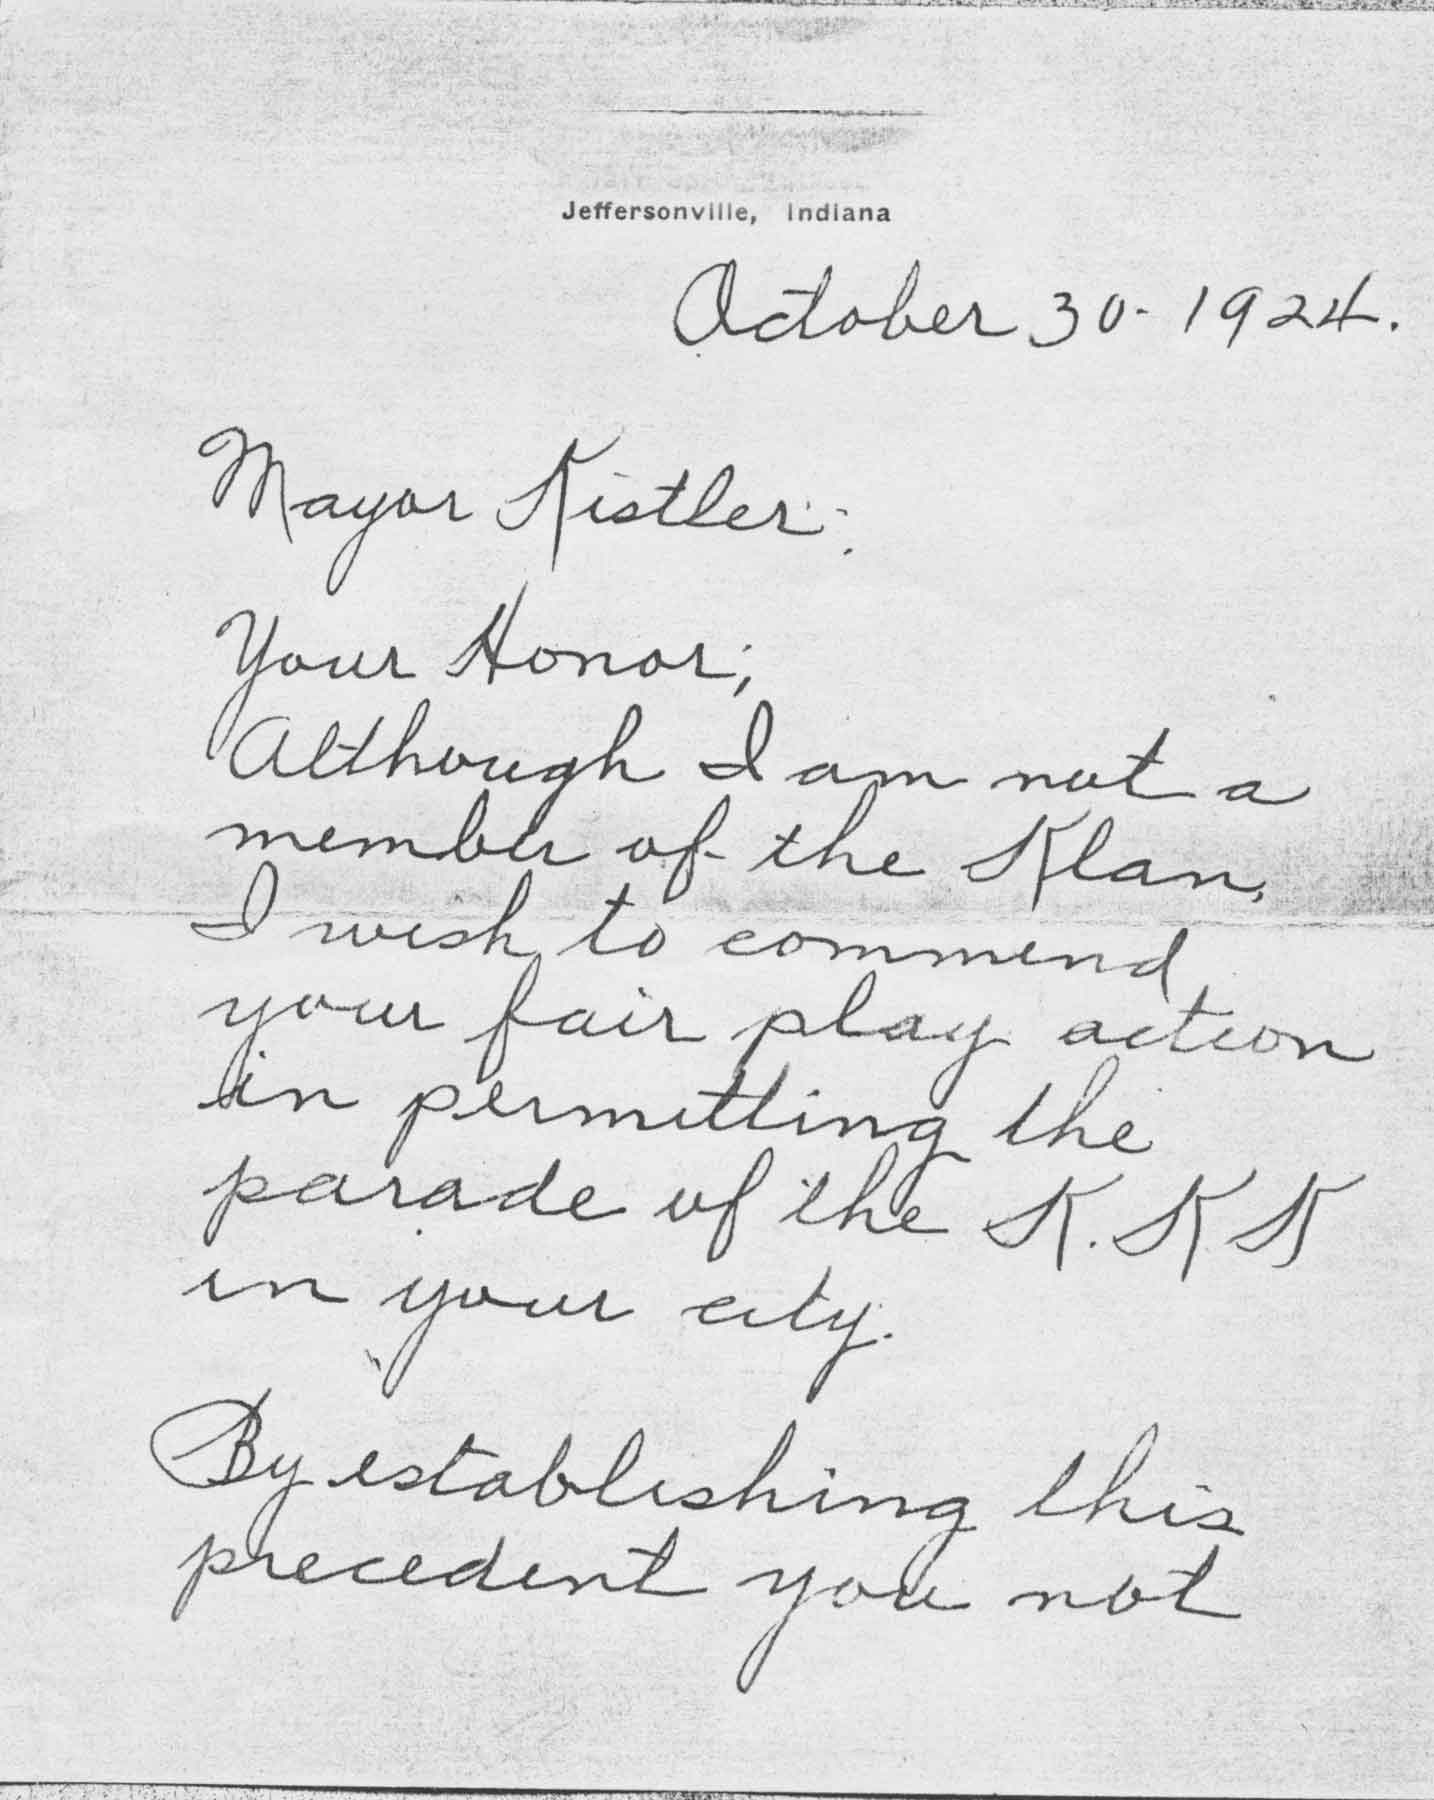 Jeffersonville, Indiana
October 30- 1924.
Mayor Kistler:
Your Honor;
Although I am not a
member of the Klan,
I wish to commend
your fair play action
in permitting the
parade of the K. K K
in your city.
By establishing this
precedent you not